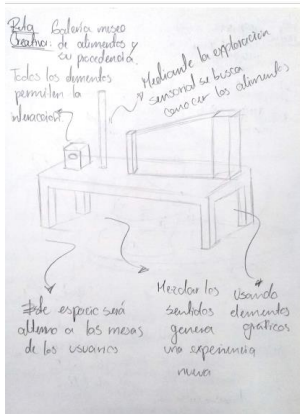 Ruta Creativa: Galería museo
de alimentos y
su procedencia.
Todos los elementos
permiten la
interacción
Mediante la exploración
sensorial se busca
conocer los alimentos
de espacio será
alterno a las mesas
de los usuarios
Mezclar los
sentidos
genera
una experiencia
nueva
Usando
elementos
gráficos